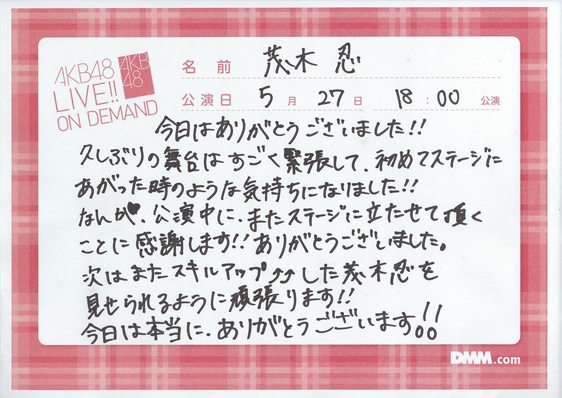 AKB48
LIVE!!
ON DEMAND
AKB
48
名前 茂木 忍
公演日 5月 27日 18:00 公演
今日はありがとうございました!!
久しぶりの舞台はすごく緊張して、初めてステージに
あがった時のような気持ちになりました!!
なんか♥、公演中に、またステージに立たせて頂く
ことに感謝します!!ありがとうございました。
次はまたスキルアップ⤴⤴した茂木忍を
見せられるように頑張ります!!
今日は本当に、ありがとうございます!!
DMM.com